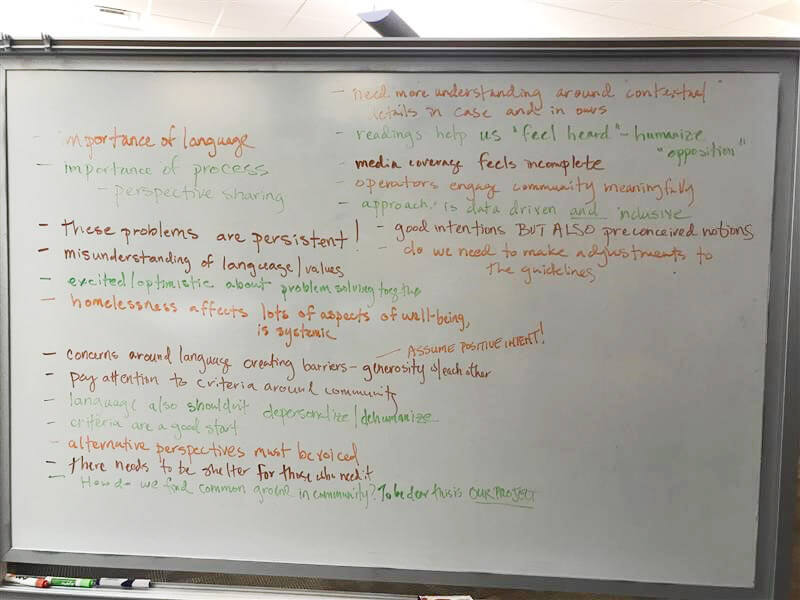 - importance of language
- importance of process
- perspective sharing
- these problems are persistent!
- misunderstanding of language/values
- excited/optimistic about problem solving together
- homelessness affects lots of aspects of well-being,
is systemic
- concerns around language creating barriers - generosity w/each other
ASSUME POSITIVE INTENT!
- pay attention to criteria around community
- language also shouldn't depersonalize/dehumanize
- criteria are a good start
- alternative perspectives must be voiced
- there needs to be shelter for those who need it
- How do we find common ground in community? To be clear this is OUR PROJECT
- need more understanding around "contextual"
details in case and in ours
- readings help us "feel heard" - humanize
"opposition"
- media coverage feels incomplete
- operators engage community meaningfully
- approach is data driven and inclusive
- good intentions BUT ALSO preconceived notions
- do we need to make adjustments to
the guidelines